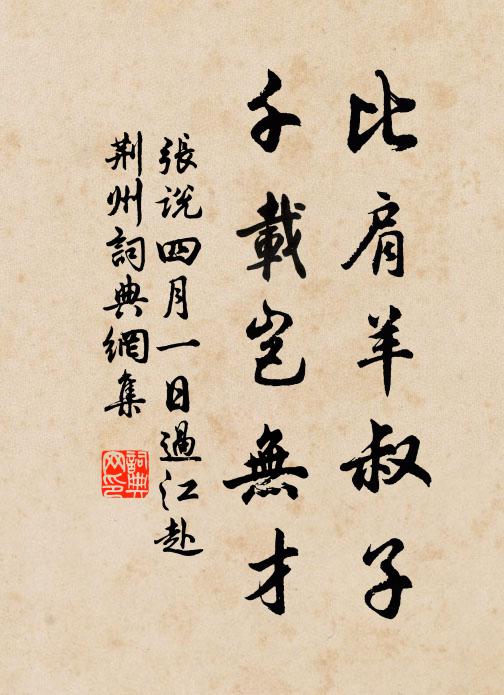 比肩羊叔子
千載豈無才
張說四月一日過江赴
荆州詞典網集
詞典网印